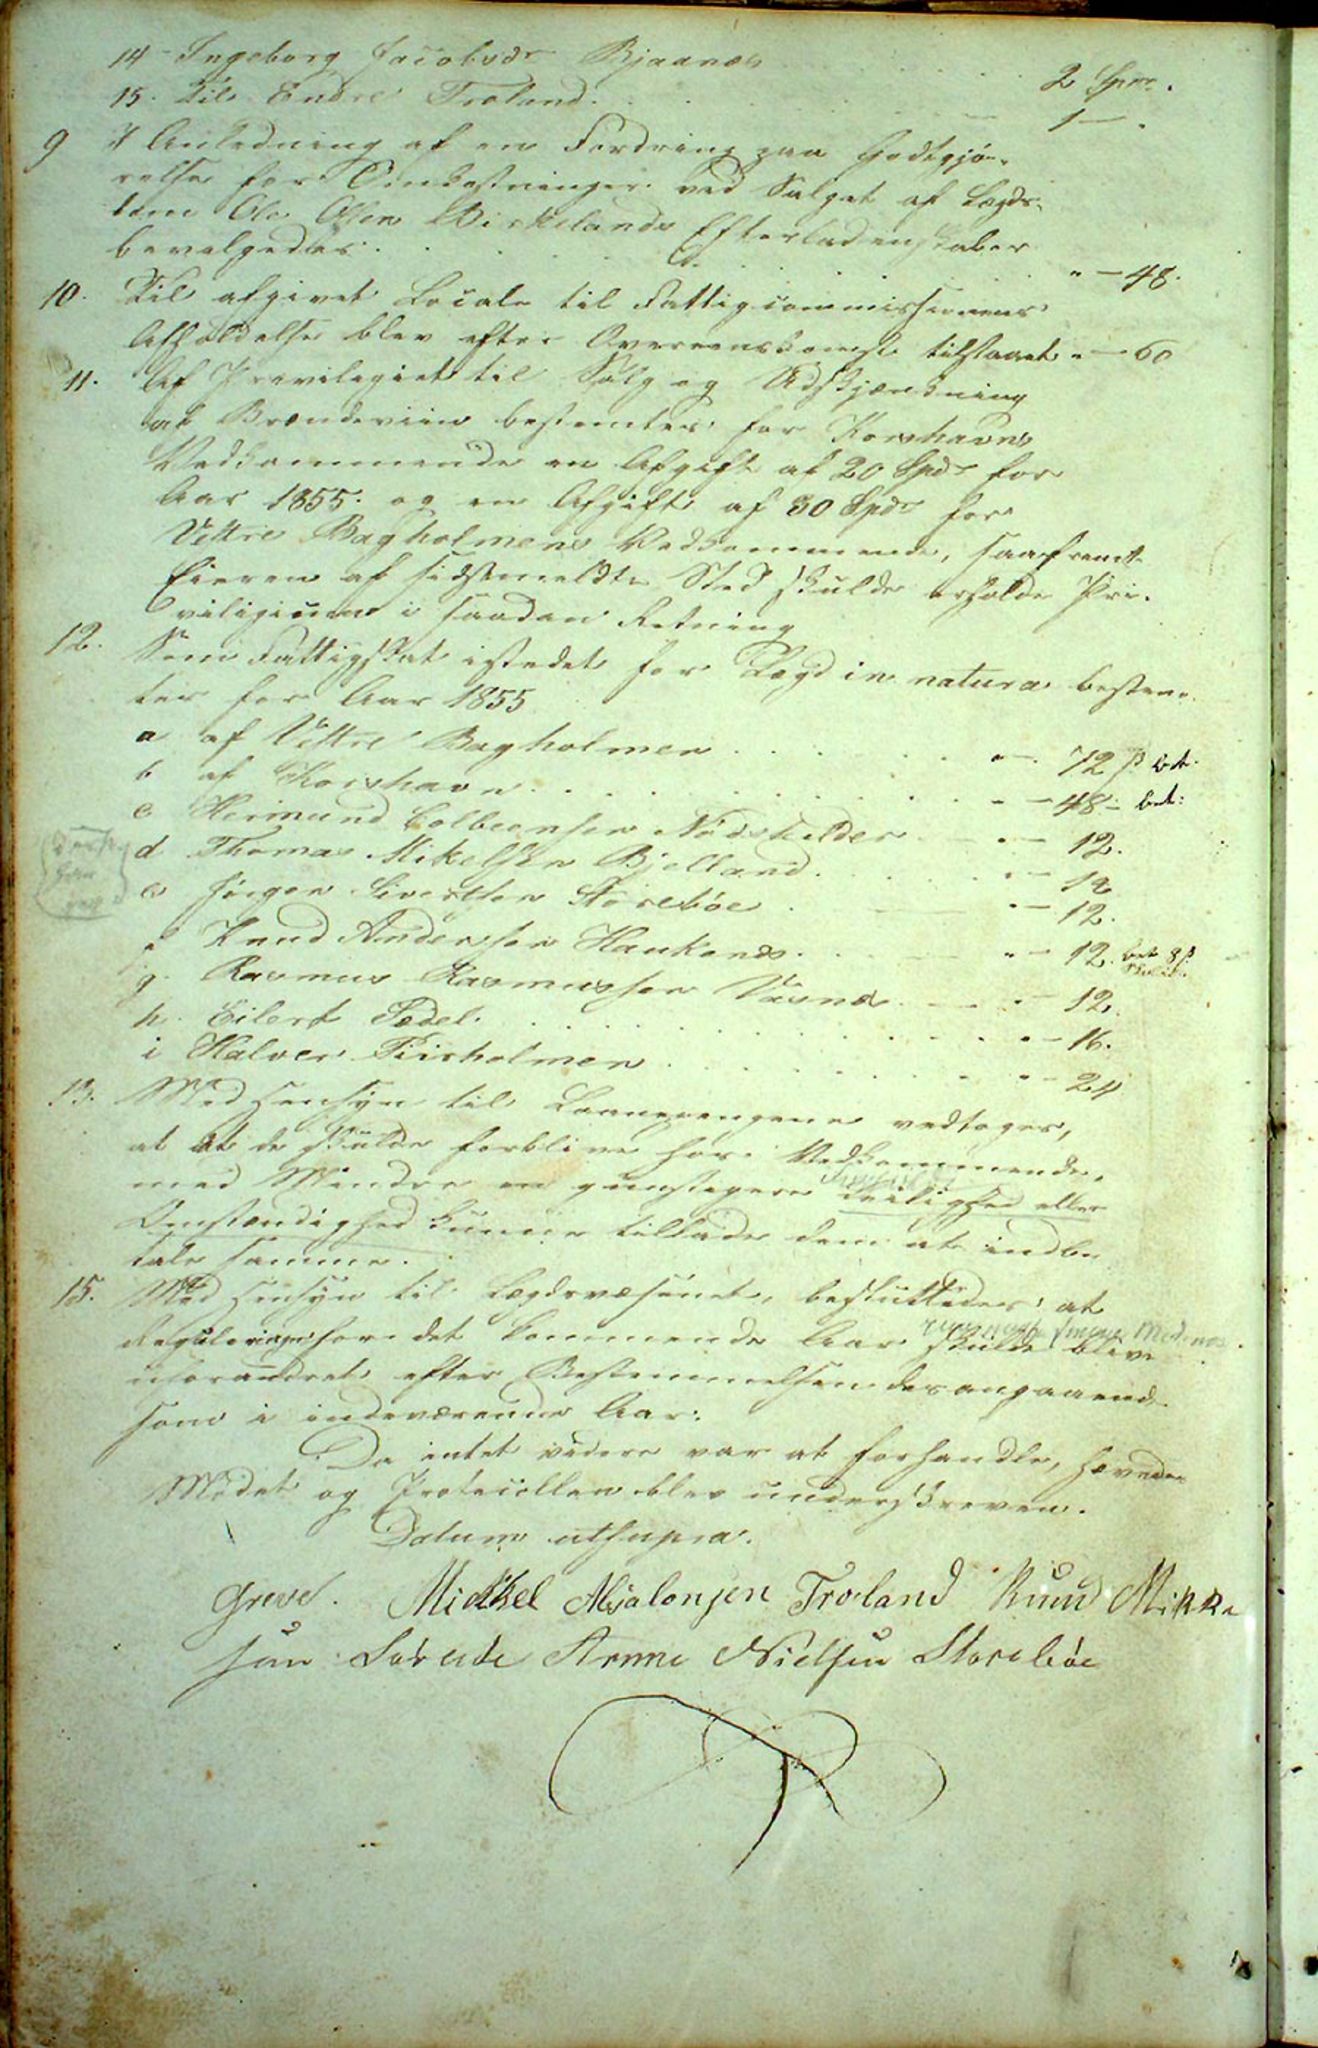 14 - Ingeborg Jacobsdr Bjaanæs . . . . 2 Spd.
15. Til Endre Troland . . . . . 1 — .
9 I Anledning af en Fordring paa Godtgjø-
relse for Omkostninger ved Salget af Lægds-
lem Ole Olsen Birkelands Efterladenskaber
bevilgedes . . . . . . " — 48.
10. Til afgivet Locale til Fattigcommissionens
Afholdelse blev efter Overeenskomst tilstaaet " — 60
11. Af Previlegiet til Salg og Udskjænkning
af Brændeviin bestemtes for Korshavns
Vedkommende en Afgift af 20 Spdr for
Aar 1855. og en Afgift af 30 Spdr for
Vestre Bagholmens Vedkommende, saafremt
Eieren af sidstmeldte Sted skulde erholde Pri-
viligium i saadan Retning
12. Som Fattigskat istedet for Lægd in natura bestem-
tes for Aar 1855
a af Vestre Bagholmen . . . " — 72 ß bet.
b af Korshavn . . . . . " — 48 — bet:
c Hermund Colbeensen Nødskilder " — 12.
d Thomas Mikelsen Bjelland . . . " — 12
e Jørgen Sivertsen Storebøe . " — 12.
f Knud Andersson Haukanæs . . " — 12. bet 8 ß
g. Rasmus Rasmussen Vasnæs . " — 12.
h. Eilert Sedel . . . . . " — 16.
i Halvor Kirholmen . . . . . " — 24
13. Med Hensyn til Laanepengene vedtoges,
at at de skulde forblive hos Vedkommende,
med Mindre en gunstigere Leilighed eller
Omstændighed kunne tillade dem at indbe
tale samme.
15. Med Hensyn til Lægdsvæsenet, besluttedes at
Reguleringen for det kommende Aar skulde blive
uforandret efter Bestemmelsen desangaaende
som i indeværende Aar.
Da intet videre var at forhandle, hævedes
Mødet og Protocollen blev underskreven.
Datum utsupra.
Greve. Mickkel Absalonsen Troland Knud Mikke
sen Arnne Nielsen Storebøe